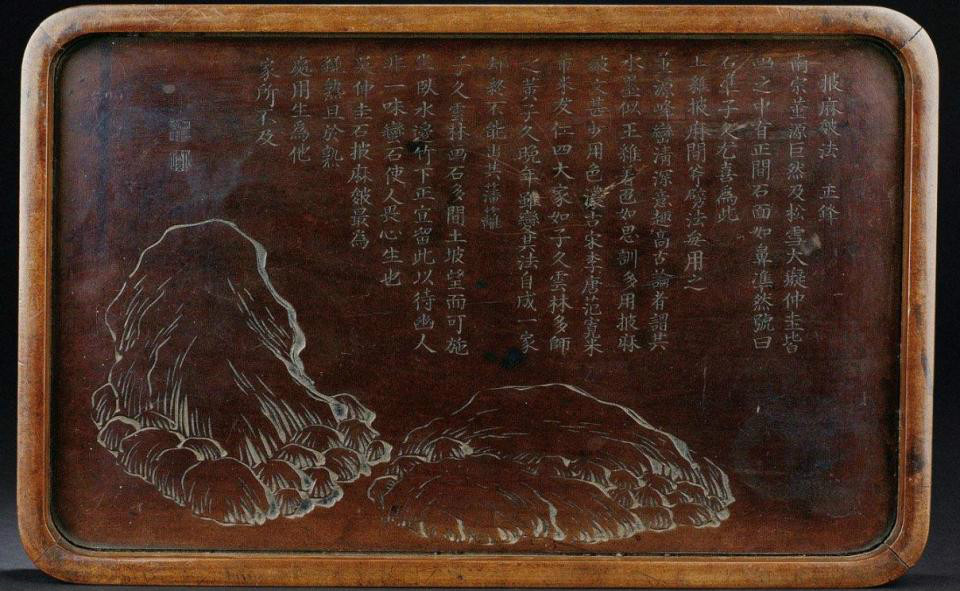 披麻皴法 正鋒
南宗董源巨然及松雪大癡仲圭皆
之中有正間石面如鼻準然號曰
石準子久尤喜為此
上雜披麻間斧劈法每用之
董源峰巒清深意趣高古論者謂其
水墨似王維着色如思訓多用披麻
皴文甚少用色濃古宋李唐范寬米
芾米友仁四大家如子久雲林多師
之黃子久晚年雖變其法自成一家
却終不能出其藩籬
子久雲林畫石多間土坡望而可施
坐臥水邊竹下正宜留此以待幽人
非一味巒石使人畏心生也
吳仲圭石披麻皴最為
熟且於熟
處用生為他
家所不及